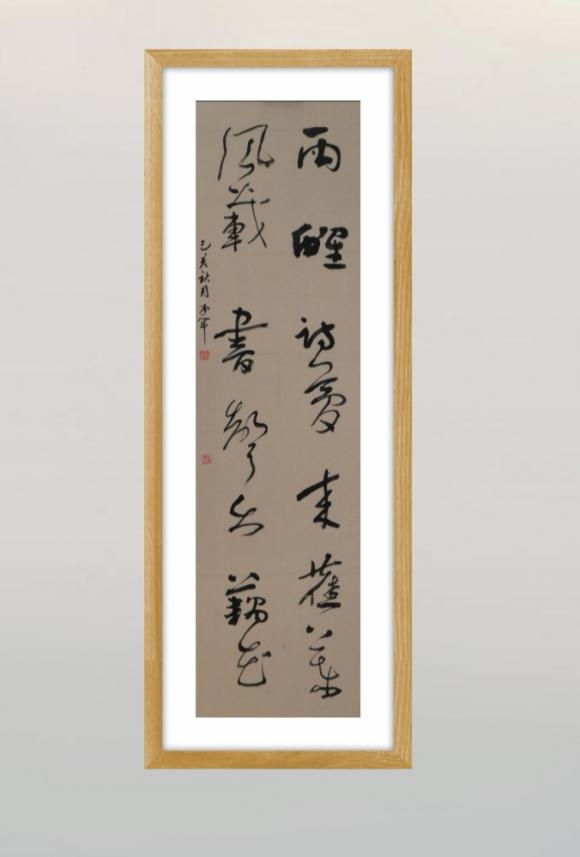 雨醒诗夢来蕉葉
風載書聲出藕花
己亥秋月